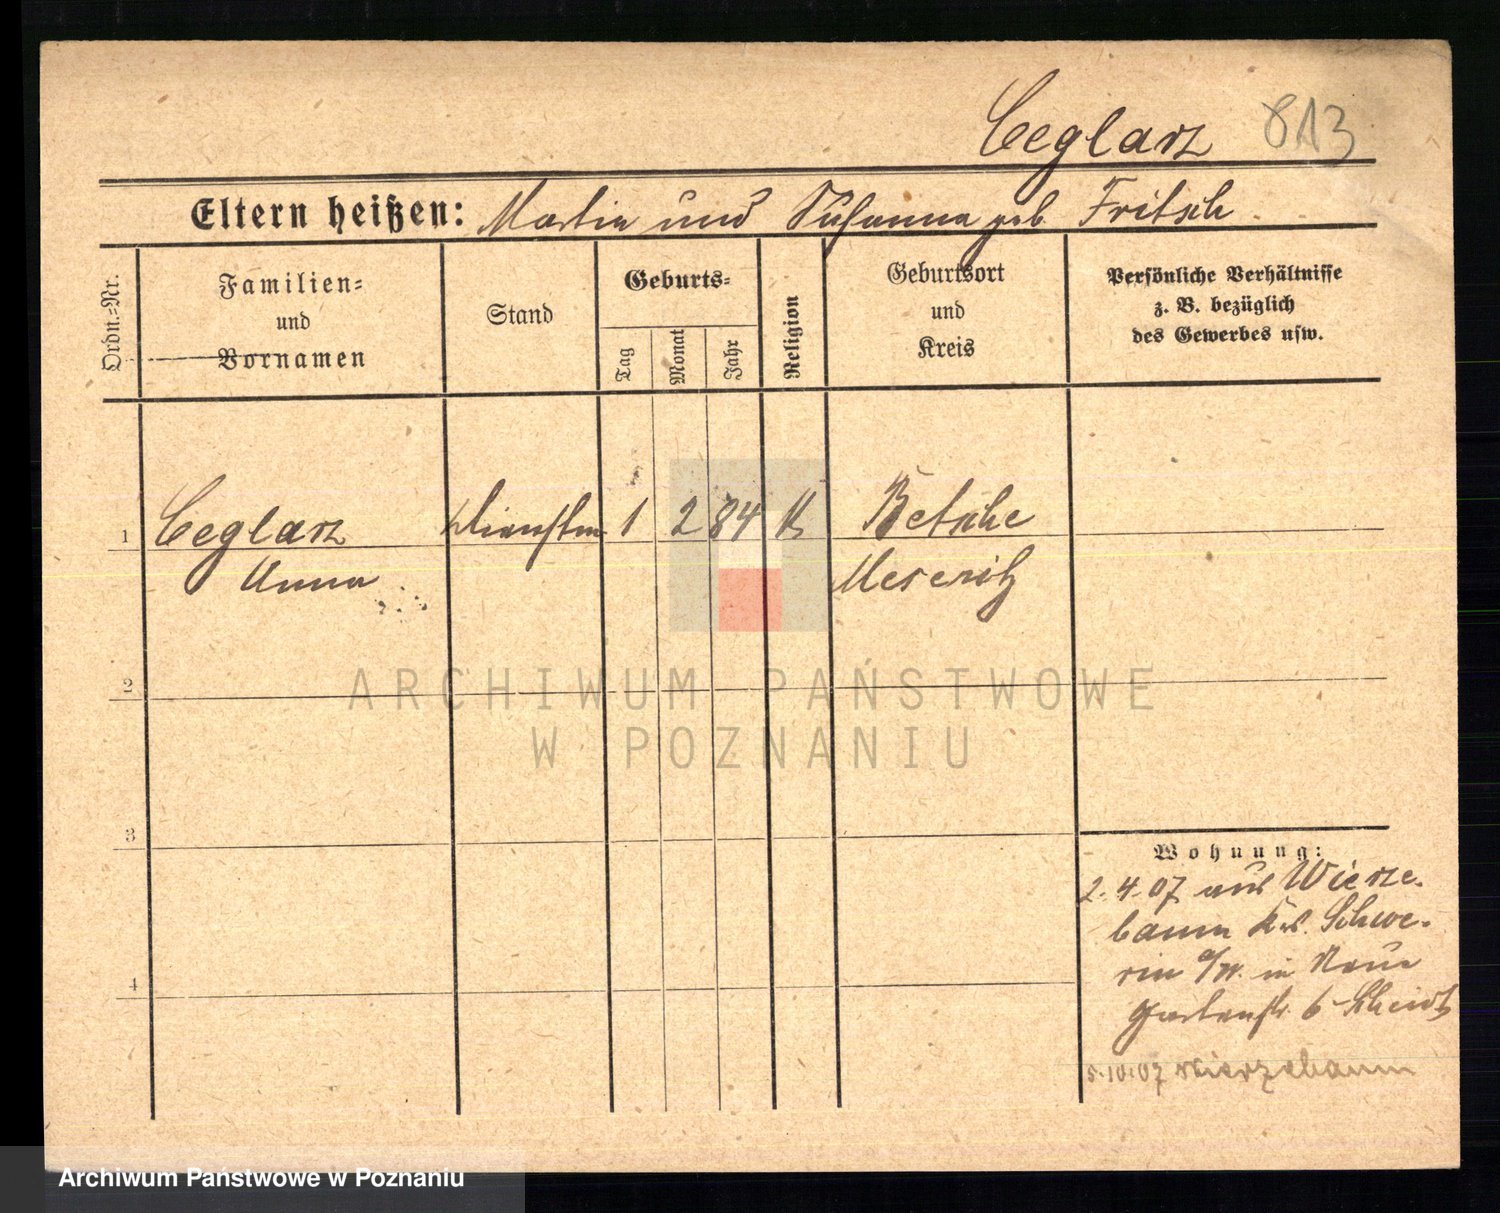 Ceglarz 813
Eltern heißen: Martin und Susanna geb. Fritsch.
Ordn.-Nr.
Familien-
und
Vornamen
Stand
Geburts-
Tag
Monat
Jahr
Religion
Geburtsort
und
Kreis
Persönliche Verhältnisse
z. B. bezüglich
des Gewerbes usw.
1 Ceglarz 1 2 84 K Betsche
Anna Meseritz
ARCHIWUM PAŃSTWOWE
W POZNANIU
2
3
4
Wohnung:
2.4.07 aus Wierze-
baum Krs. Schwe-
rin a/W. in
Gartenstr. 6
5.10.07 Wierzebaum
Archiwum Państwowe w Poznaniu